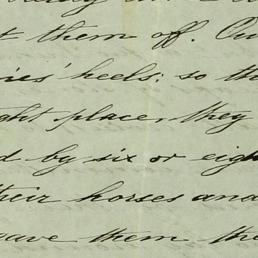 t them off. Ou
ies' heels; so th
ght place, they
d by six or eigh
their horses and
eave them the